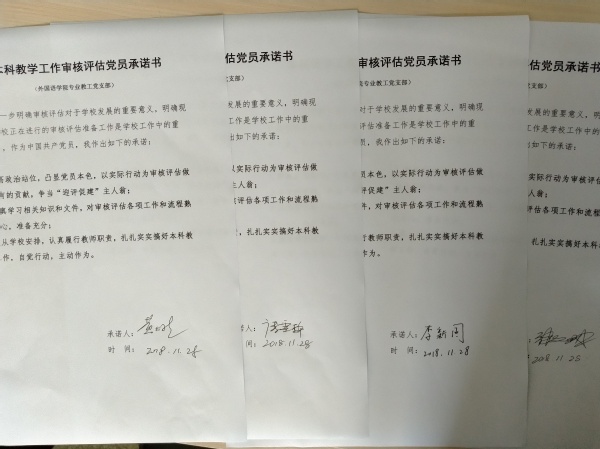 本科教学工作审核评估党员承诺书
（外国语学院专业教工党支部）
一步明确审核评估对于学校发展的重要意义，明确现
学校正在进行的审核评估准备工作是学校工作中的重
，作为中国共产党员，我作出如下的承诺：
高政治站位，凸显党员本色，以实际行动为审核评估做
向的贡献，争当“迎评促建”主人翁；
真学习相关知识和文件，对审核评估各项工作和流程熟
心，准备充分；
从学校安排，认真履行教师职责，扎扎实实搞好本科教
作，自觉行动，主动作为。
承诺人：
时 间： 2018.11.28
估党员承诺书
支部）
发展的重要意义，明确现
作是学校工作中的重
出如下的承诺：
以实际行动为审核评估做
主人翁；
核评估各项工作和流程熟
，扎扎实实搞好本科教
人：
间： 2018.11.28
审核评估党员承诺书
专业教工党支部）
对于学校发展的重要意义，明确现
评估准备工作是学校工作中的重
员，我作出如下的承诺：
员本色，以实际行动为审核评估做
评促建”主人翁；
件，对审核评估各项工作和流程熟
行教师职责，扎扎实实搞好本科教
作为。
承诺人： 李新国
时 间： 2018.11.28
评估党员承诺书
教工党支部）
学校发展的重要意义，明确现
备工作是学校工作中的重
作出如下的承诺：
，以实际行动为审核评估做
主人翁；
核评估各项工作和流程熟
，扎扎实实搞好本科教
2018.11.28